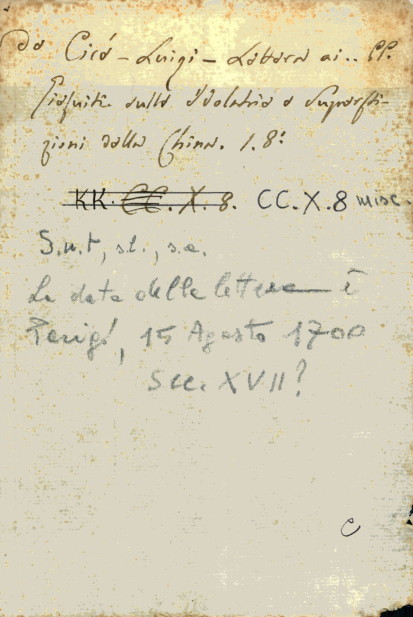 Da Cicé - Luigi - Lettera ai.. PP.
Giesuiti sulla Idolatria e Supersti-
zioni della China. 1. 8º
KK. CC. X. 8. CC. X. 8 misc.
S.n.t., s.l., s.a.
La data della lettera è
Parigi, 15 Agosto 1700
Sec. XVII?
c